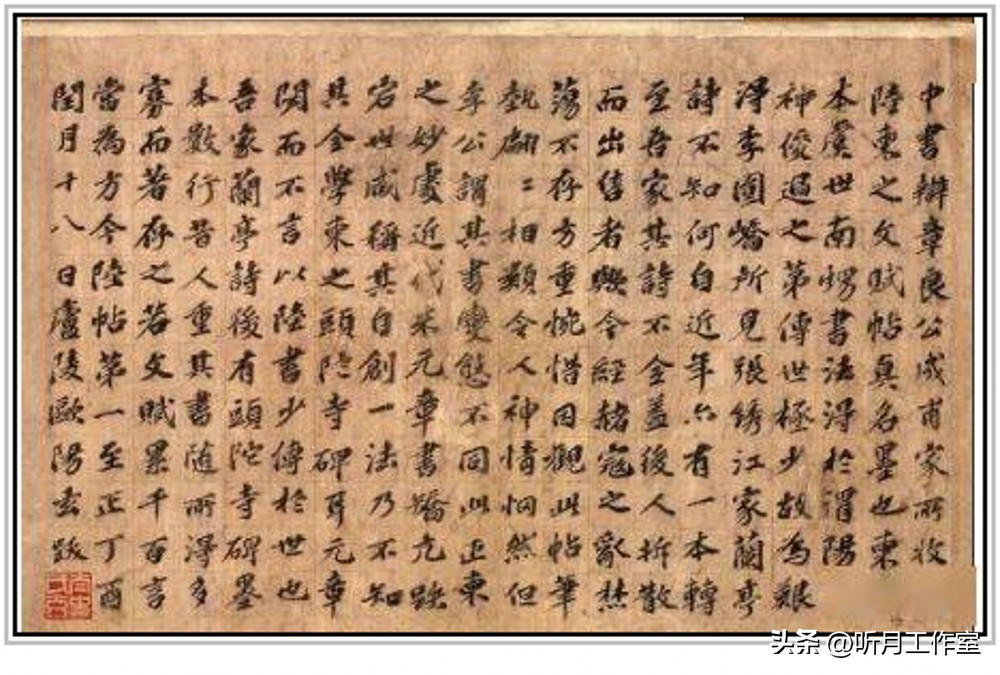 中書辦章良公成甫家所收
陸柬之文賦帖真名墨也柬
本虞世南甥書法得於渭陽
神俊過之第傳世極少故為艱
得李嶠所見張綉江家蘭亭
詩不知何自近年亦有一本轉
至吾家其詩不全蓋後人拆散
而出售者歟今經赭寇之焚
蕩不存方重惋惜因觀此帖筆
執翩二相類令人神情惘然但
李公謂其書變態不同此正柬
之妙處近代米元章書矯亢跌
宕世咸稱其自創一法乃不知
其全學柬之頭陀寺碑耳元章
閟而不言以陸書少傳於世也
吾家蘭亭詩後有頭陀寺碑墨
本數行昔人重其書隨所得多
寡而著存之若文賦累千百言
當為方今陸帖第一至正丁酉
閏月十八日廬陵歐陽玄跋
头条 @听月工作室